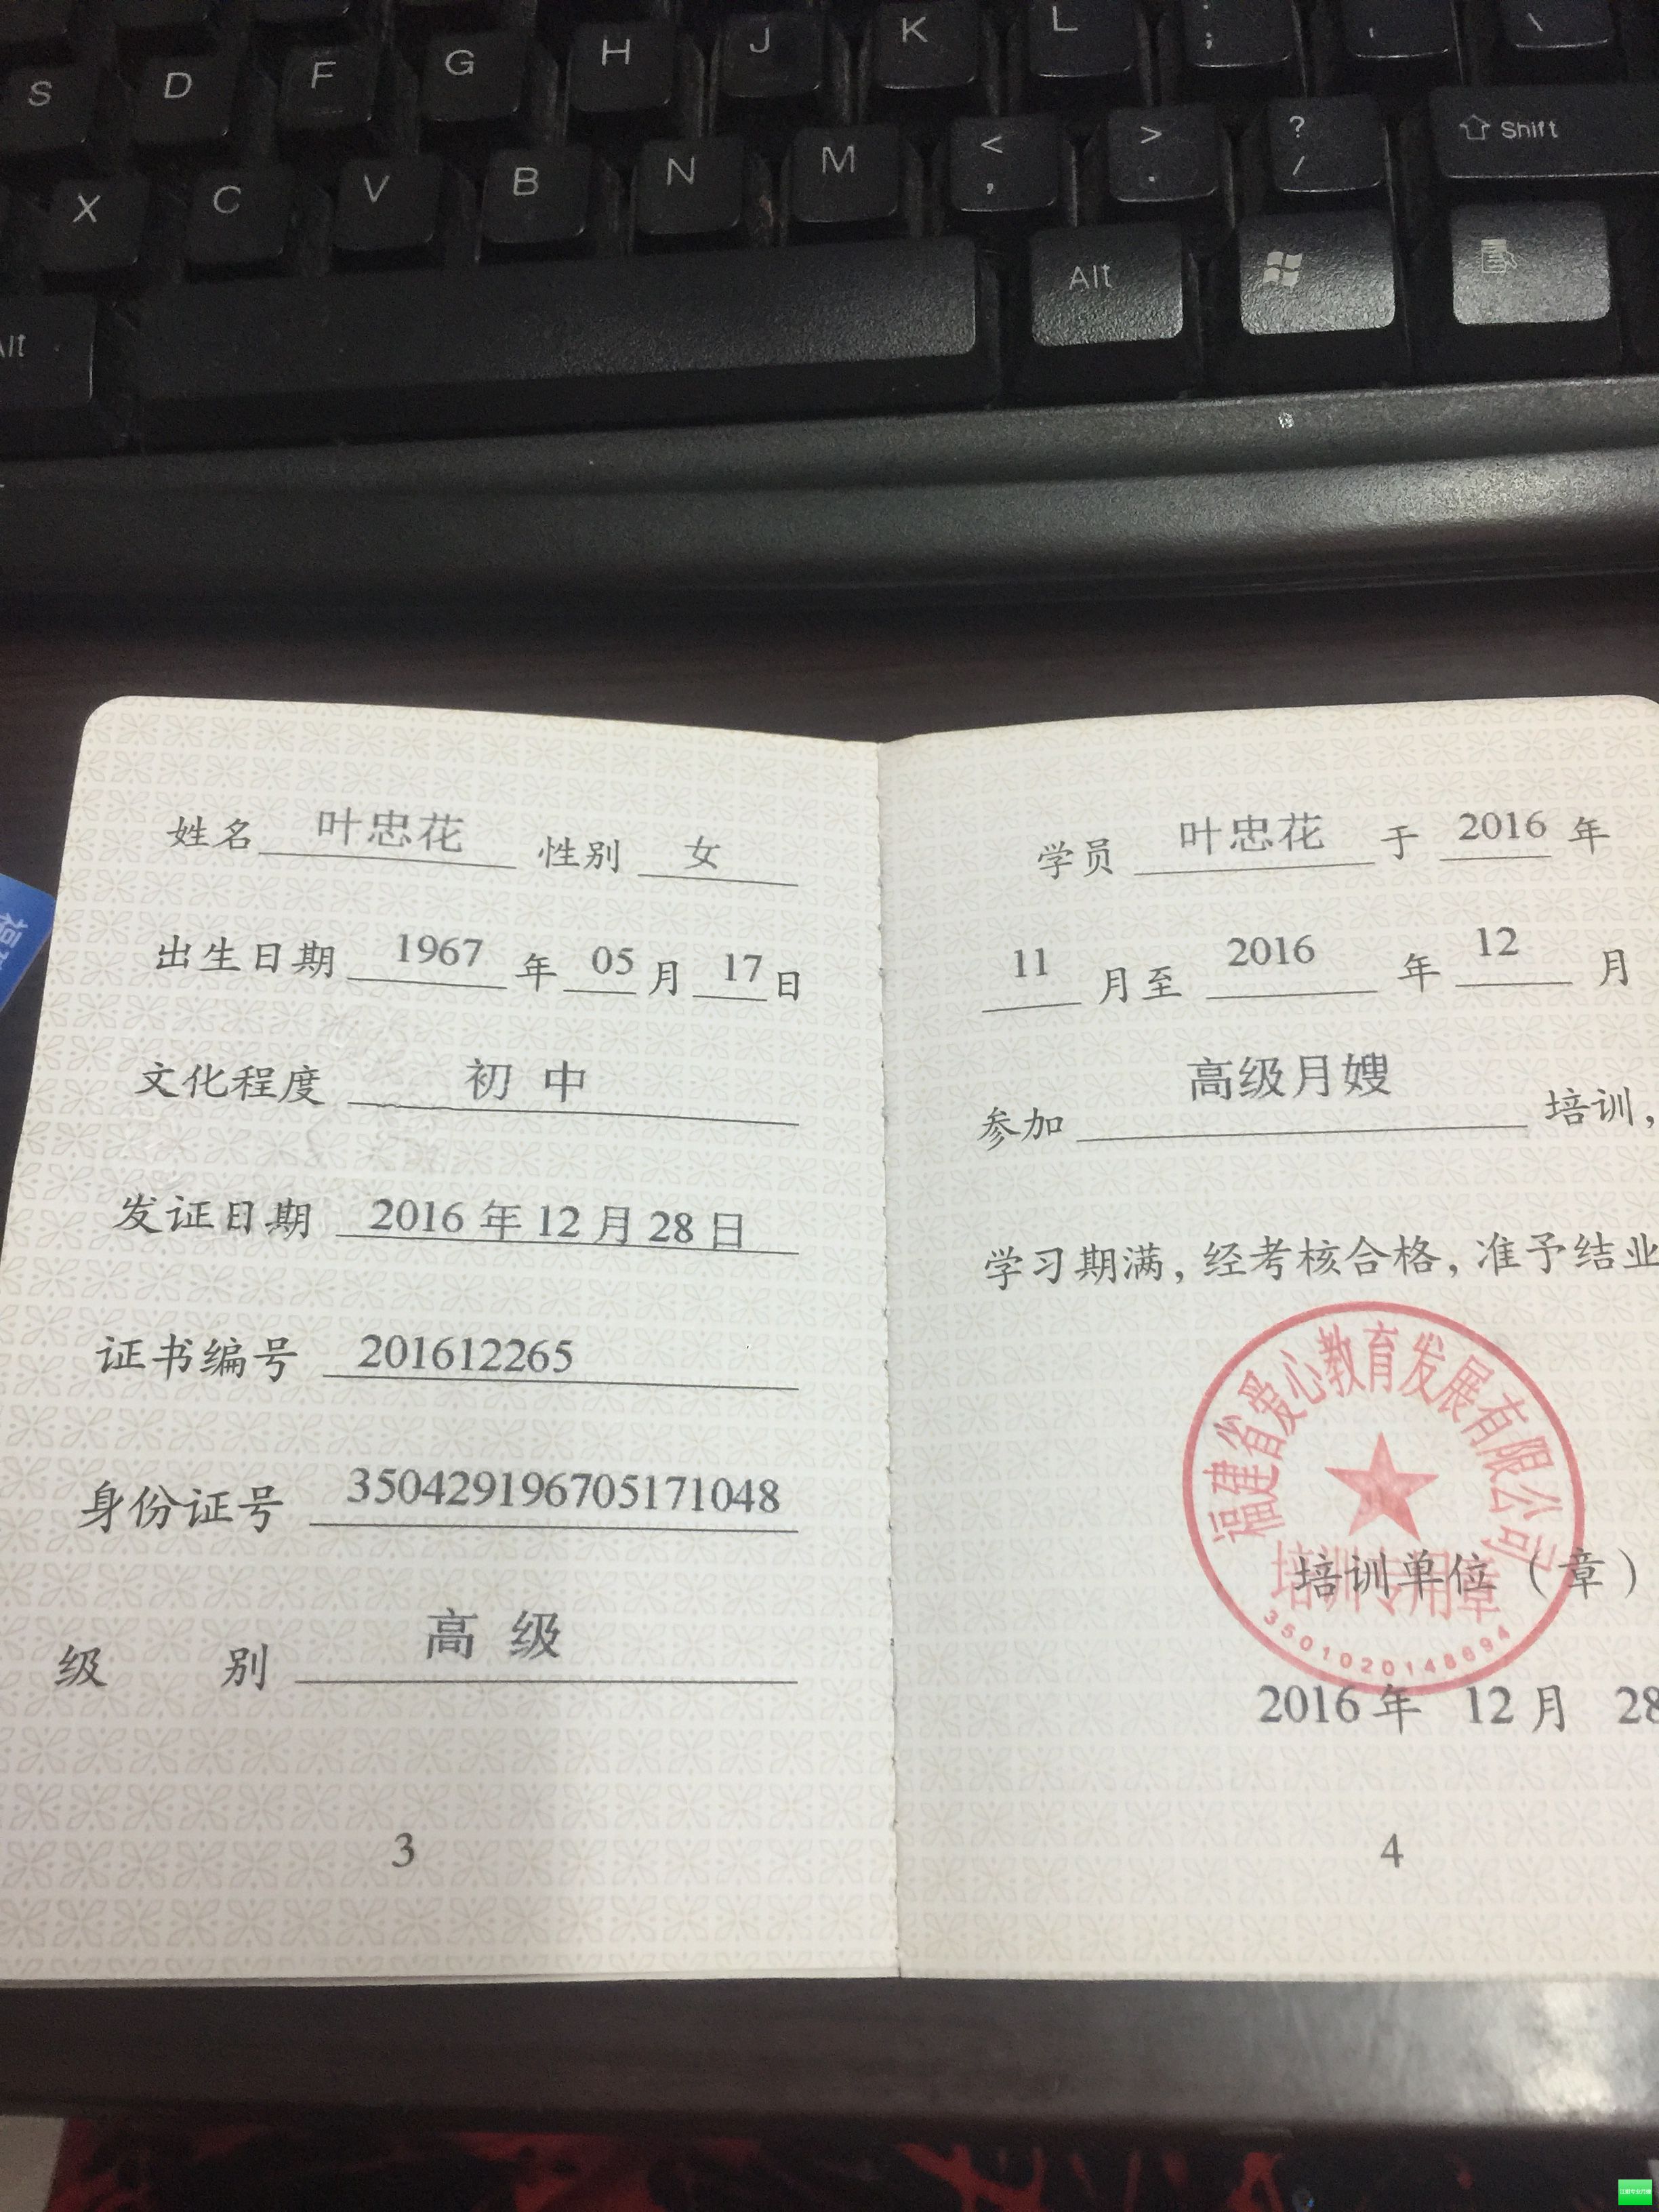 S D F G H J K L : ; ' \
X C V B N M < , > . ? / Shift
Alt Alt
姓名 叶忠花 性别 女
出生日期 1967 年 05 月 17 日
文化程度 初中
发证日期 2016年12月28日
证书编号 201612265
身份证号 350429196705171048
级 别 高级
3
学员 叶忠花 于 2016 年
11 月至 2016 年 12 月
参加 高级月嫂 培训，
学习期满，经考核合格，准予结业
福建省爱心教育发展有限公司
培训专用章
培训单位（章）
2016年 12月 28
4